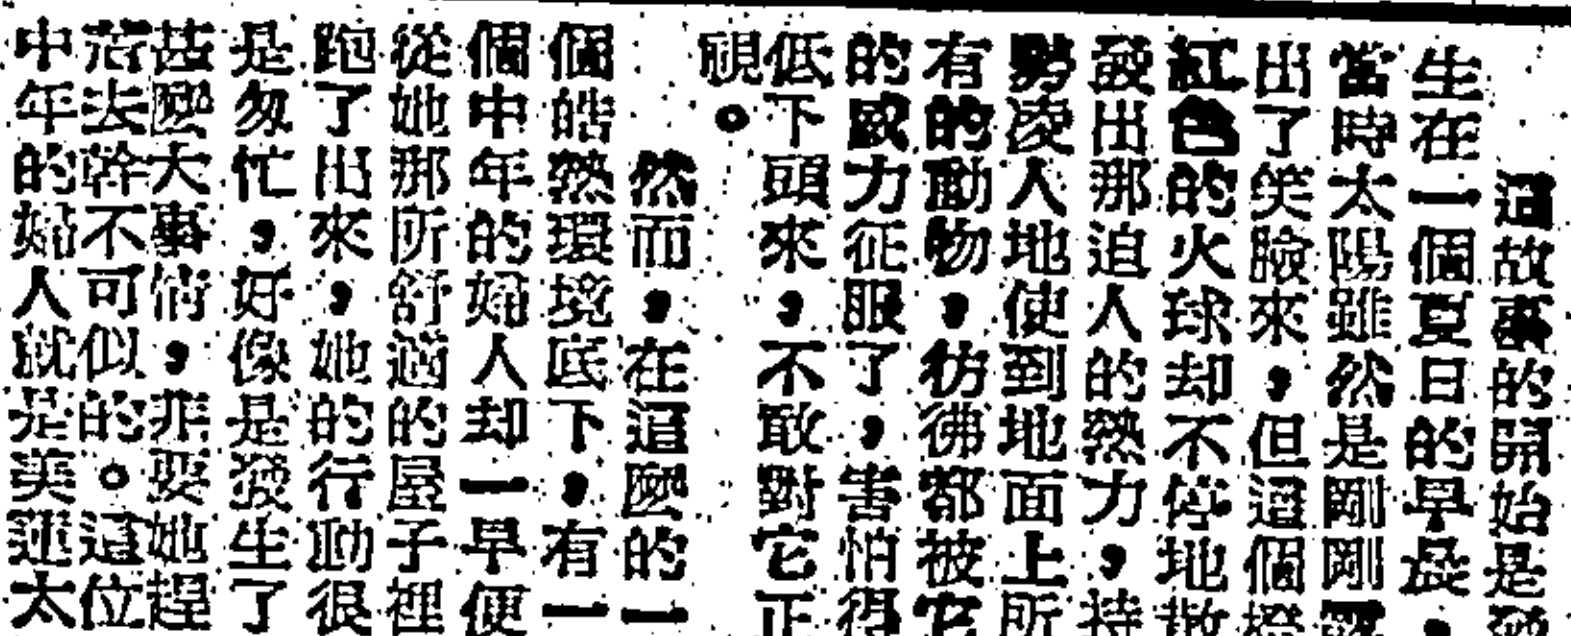 這故事的開始是發
生在一個夏日的早晨，
當時太陽雖然是剛剛露
出了笑臉來，但這個橙
紅色的火球却不停地散
發出那迫人的熱力，持
勢凌人地使到地面上所
有的動物，彷彿都被它
的威力征服了，害怕得
低下頭來，不敢對它正
視。
然而，在這麼的一
個皓熱環境底下，有一
個中年的婦人却一早便
從她那所舒適的屋子裡
跑了出來，她的行動很
是匆忙，好像是發生了
甚麼大事情，非要她趕
著去幹不可似的。這位
中年的婦人就是美蓮太